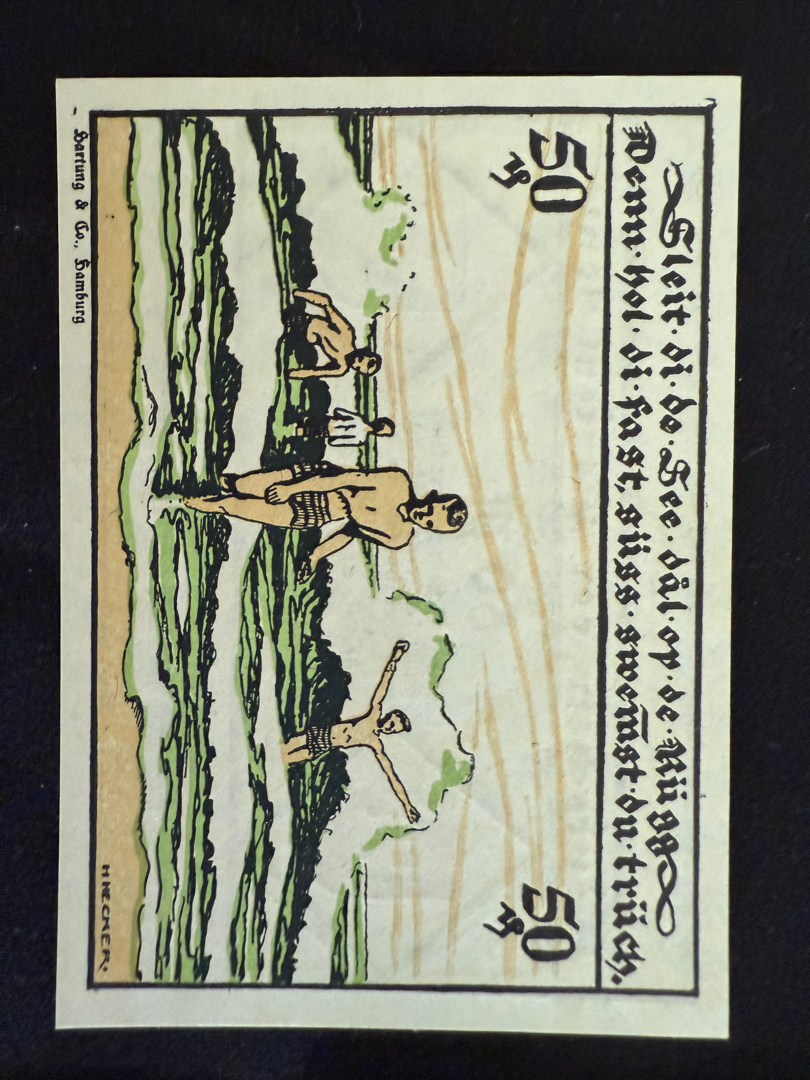 Sleit·di·de·See·dål·op·de·Rügg
Denn·hol·di·fast,süss·swem̅st·du·trüch.
50 ₰
50 ₰
H NECKER.
Hartung & Co., Hamburg